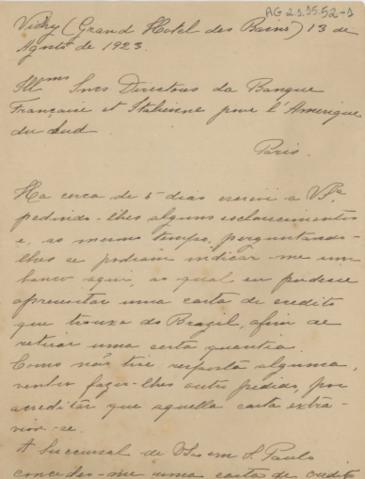 AG 21.15.52-1
Vichy (Grand Hotel des Bains) 13 de
Agosto de 1923.
Illmos Snrs Directores da Banque
Française et Italienne pour l'Amerique
du Sud
Paris.
Ha cerca de 5 dias escrevi a VSas
pedindo-lhes alguns esclarecimentos
e, ao mesmo tempo, perguntando-
lhes se podiam indicar-me um
banco aqui, ao qual eu podesse
apresentar uma carta de credito
que trouxe do Brazil, afim de
retirar uma certa quantia.
Como não tive resposta alguma,
venho fazer-lhes outro pedido, por
acreditar que aquella carta extra-
viou-se.
A Succursal de em S. Paulo
concedeu-me uma carta de credito